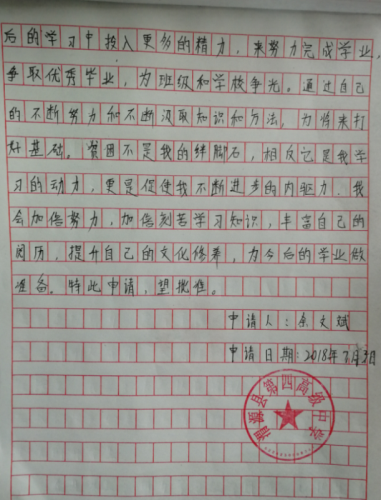 后的学习中投入更多的精力，来努力完成学业，
争取优秀毕业，为班级和学校争光。通过自己
的不断努力和不断汲取知识和方法，为将来打
好基础。贫困不是我的绊脚石，相反它是我学
习的动力，更是促使我不断进步的内驱力。我
会加倍努力，加倍刻苦学习知识，丰富自己的
阅历，提升自己的文化修养，为今后的学业做
准备。特此申请，望批准。
申请人：余文斌
申请日期：2018年3月
渭源县第四高级中学